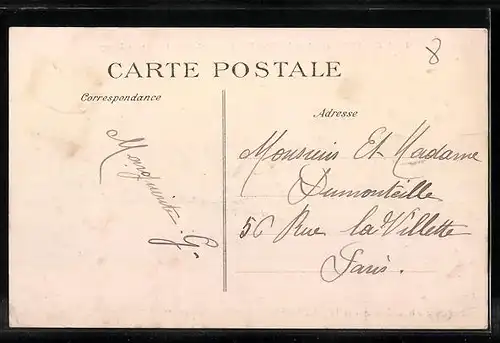 8
CARTE POSTALE
Correspondance
Adresse
Marguerite. G.
Monsieur Et Madame
Dumonteille
56 Rue la Villette
Paris.